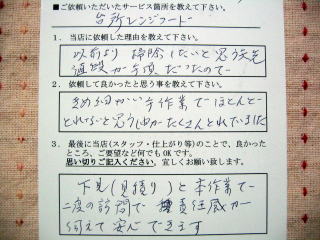 ■ご依頼いただいたサービス箇所を教えて下さい。
台所レンジフード
1. 当店に依頼した理由を教えて下さい。
以前より掃除したいと思う矢先
値段が手頃だったので
2. 依頼して良かったと思う事を教えて下さい。
きめ細かい手作業でほとんど
とれないと思う油がたくさんとれていました
3. 最後に当店(スタッフ・仕上がり等)のことで、良かった
ところ、ご要望など何でもOKです。
思い切りご記入ください。宜しくお願い致します。
下見(見積り)と本作業で
二度の訪問で 責任感が
伺えて安心できます